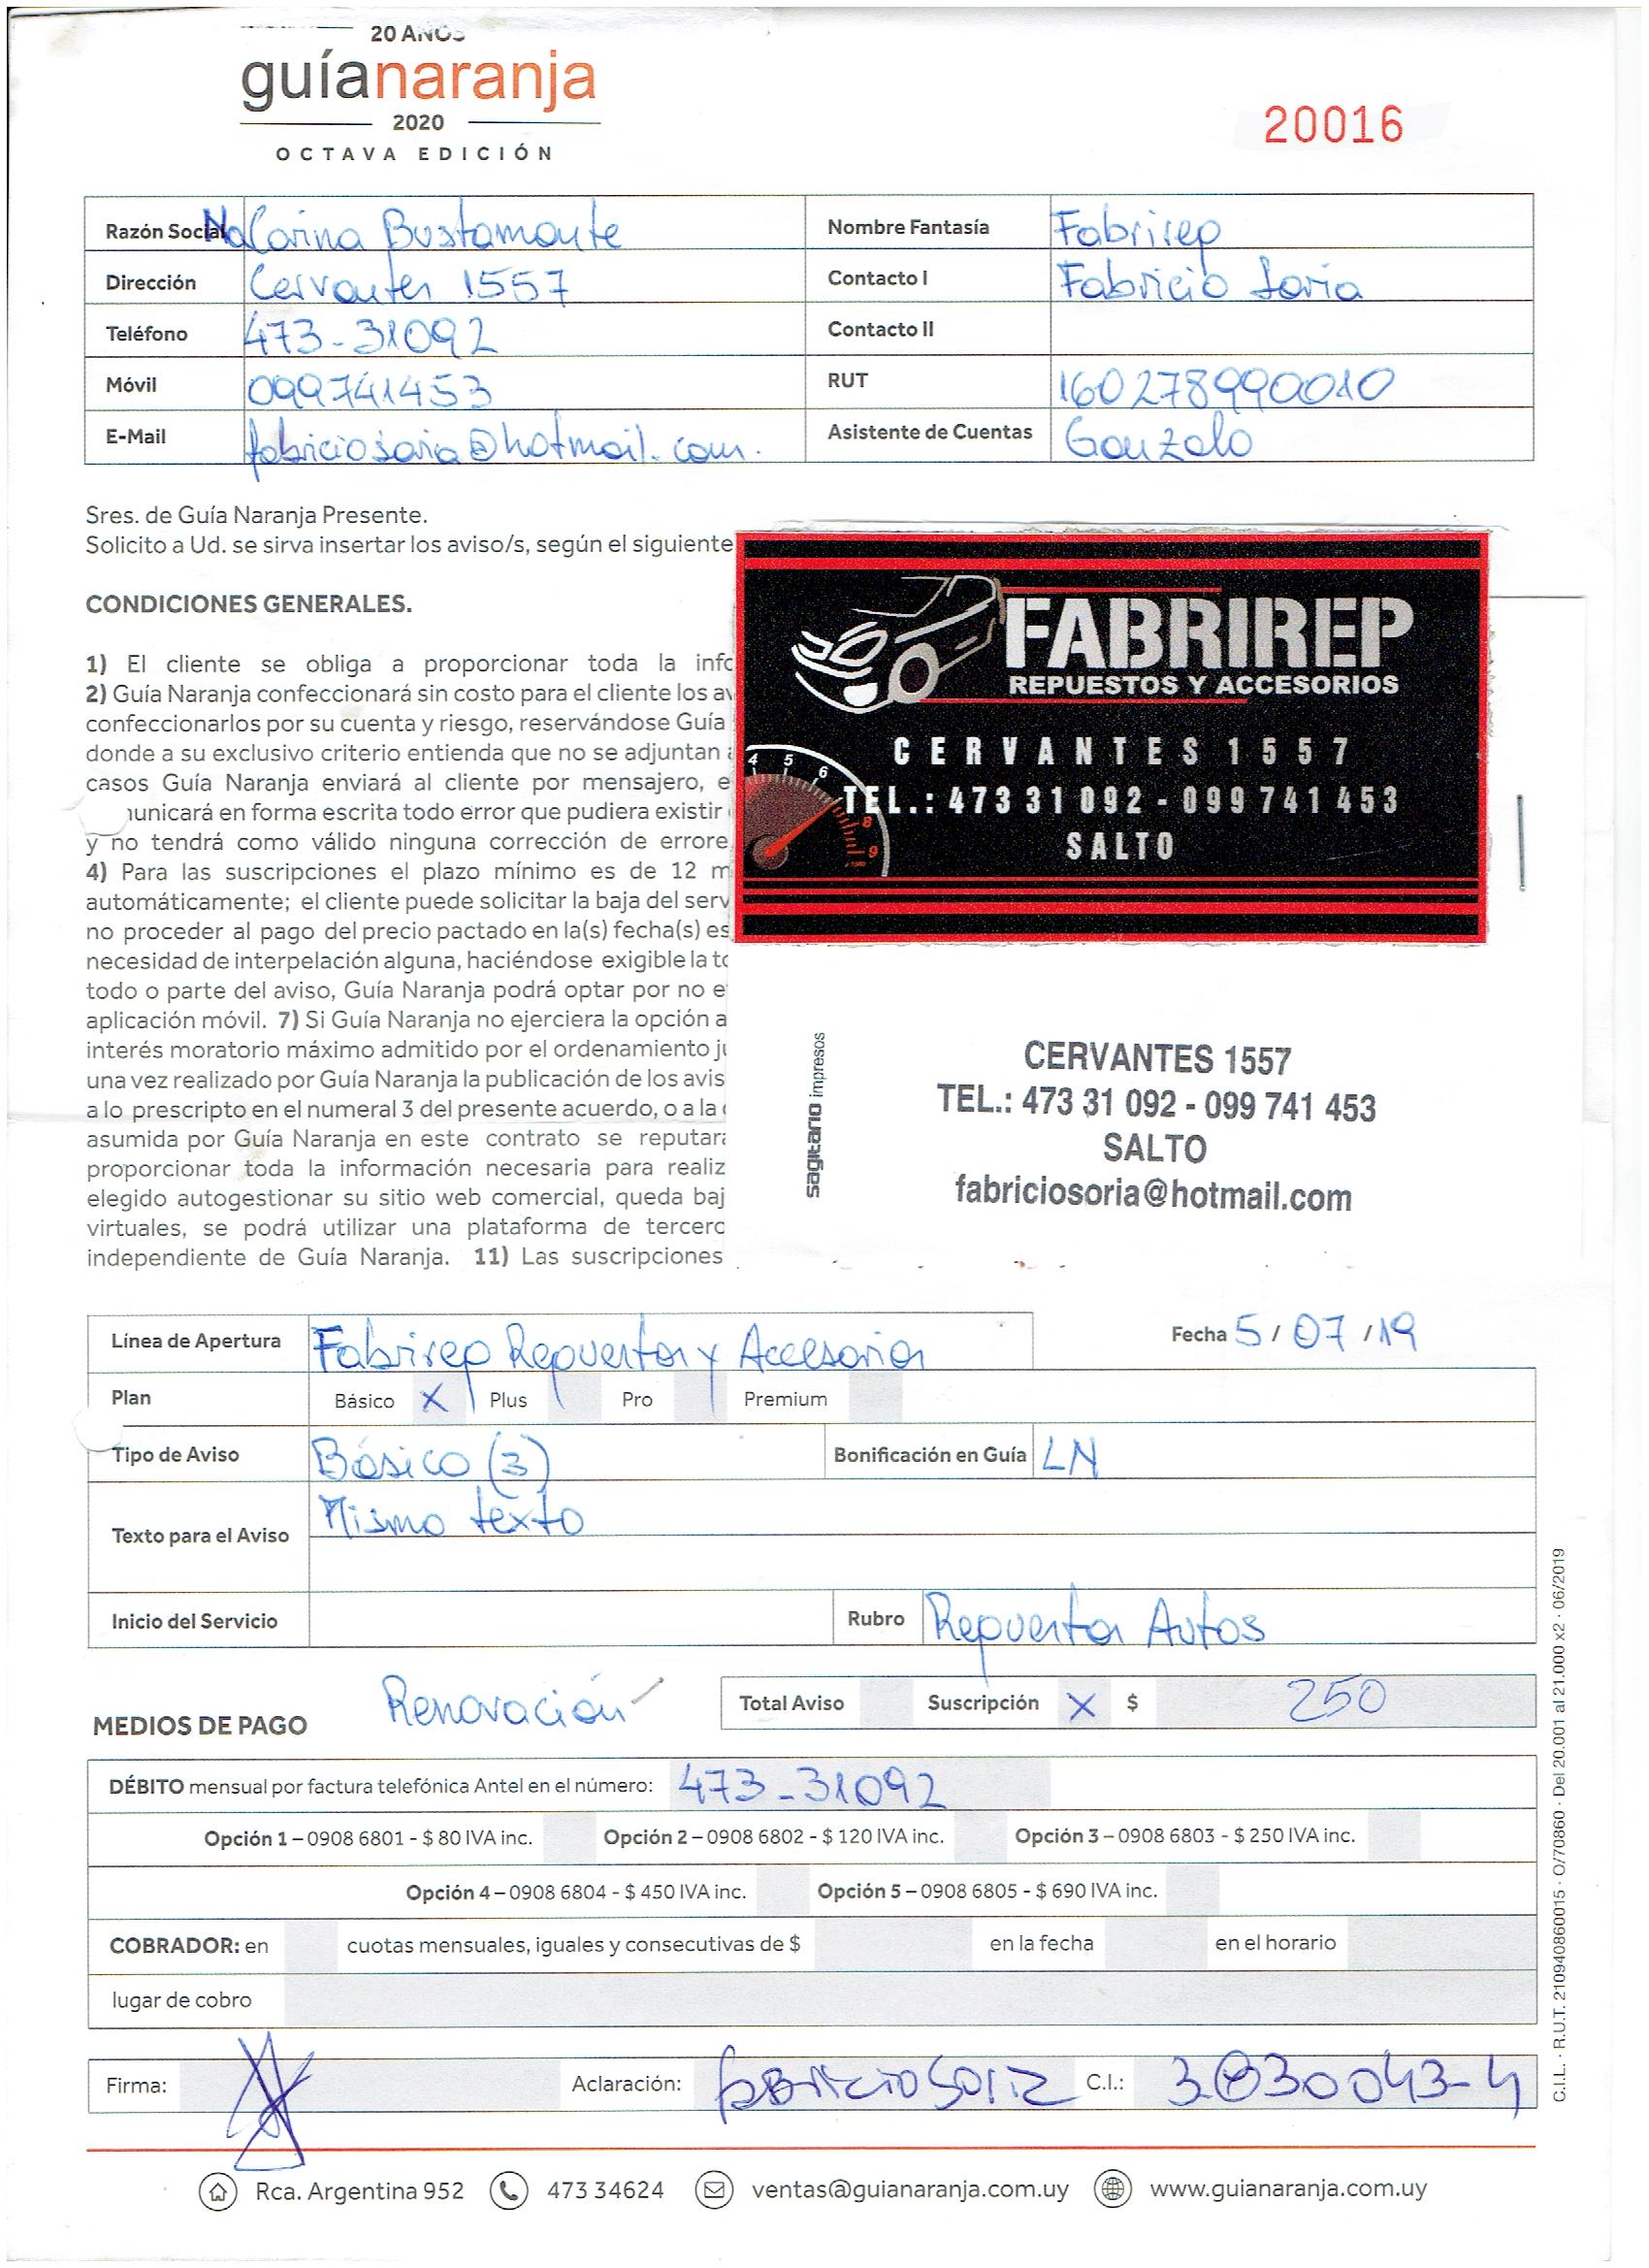 20 AÑOS
guíanaranja
2020
OCTAVA EDICIÓN
20016
Razón Social Na Carina Bustamante Nombre Fantasía Fabrirep
Dirección Cervantes 1557 Contacto I Fabricio Soria
Teléfono 473-31092 Contacto II
Móvil 099741453 RUT 160278990010
E-Mail fabriciosoria@hotmail.com. Asistente de Cuentas Gonzalo
Sres. de Guía Naranja Presente.
Solicito a Ud. se sirva insertar los aviso/s, según el siguiente
CONDICIONES GENERALES.
1) El cliente se obliga a proporcionar toda la
2) Guía Naranja confeccionará sin costo para el cliente los
confeccionarlos por su cuenta y riesgo, reservándose Guía
donde a su exclusivo criterio entienda que no se adjuntan
casos Guía Naranja enviará al cliente por mensajero,
unicará en forma escrita todo error que pudiera existir
y no tendrá como válido ninguna corrección de errore
4) Para las suscripciones el plazo mínimo es de 12 m
automáticamente; el cliente puede solicitar la baja del serv
no proceder al pago del precio pactado en la(s) fecha(s) es
necesidad de interpelación alguna, haciéndose exigible la
todo o parte del aviso, Guía Naranja podrá optar por no e
aplicación móvil. 7) Si Guía Naranja no ejerciera la opción a
interés moratorio máximo admitido por el ordenamiento
una vez realizado por Guía Naranja la publicación de los avis
a lo prescripto en el numeral 3 del presente acuerdo, o a la
asumida por Guía Naranja en este contrato se reputará
proporcionar toda la información necesaria para realiz
elegido autogestionar su sitio web comercial, queda baj
virtuales, se podrá utilizar una plataforma de tercero
independiente de Guía Naranja. 11) Las suscripciones
FABRIREP
REPUESTOS Y ACCESORIOS
CERVANTES 1557
4 5 6 8 9
TEL.: 473 31 092 - 099 741 453
SALTO
sagitario impresos
CERVANTES 1557
TEL.: 473 31 092 - 099 741 453
SALTO
fabriciosoria@hotmail.com
Línea de Apertura Fabrirep Repuestos y Accesorios Fecha 5 / 07 / 19
Plan Básico X Plus Pro Premium
Tipo de Aviso Básico (3) Bonificación en Guía LN
Texto para el Aviso Mismo texto
Inicio del Servicio Rubro Repuestos Autos
MEDIOS DE PAGO Renovación Total Aviso Suscripción X $ 250
DÉBITO mensual por factura telefónica Antel en el número: 473-31092
Opción 1 – 0908 6801 - $ 80 IVA inc. Opción 2 – 0908 6802 - $ 120 IVA inc. Opción 3 – 0908 6803 - $ 250 IVA inc.
Opción 4 – 0908 6804 - $ 450 IVA inc. Opción 5 – 0908 6805 - $ 690 IVA inc.
COBRADOR: en cuotas mensuales, iguales y consecutivas de $ en la fecha en el horario
lugar de cobro
Firma: Aclaración: fabricio Soria C.I.: 3030043-4
Rca. Argentina 952 473 34624 ventas@guianaranja.com.uy www.guianaranja.com.uy
C.I.L. · R.U.T. 210940860015 · O/70860 · Del 20.001 al 21.000 x2 · 06/2019